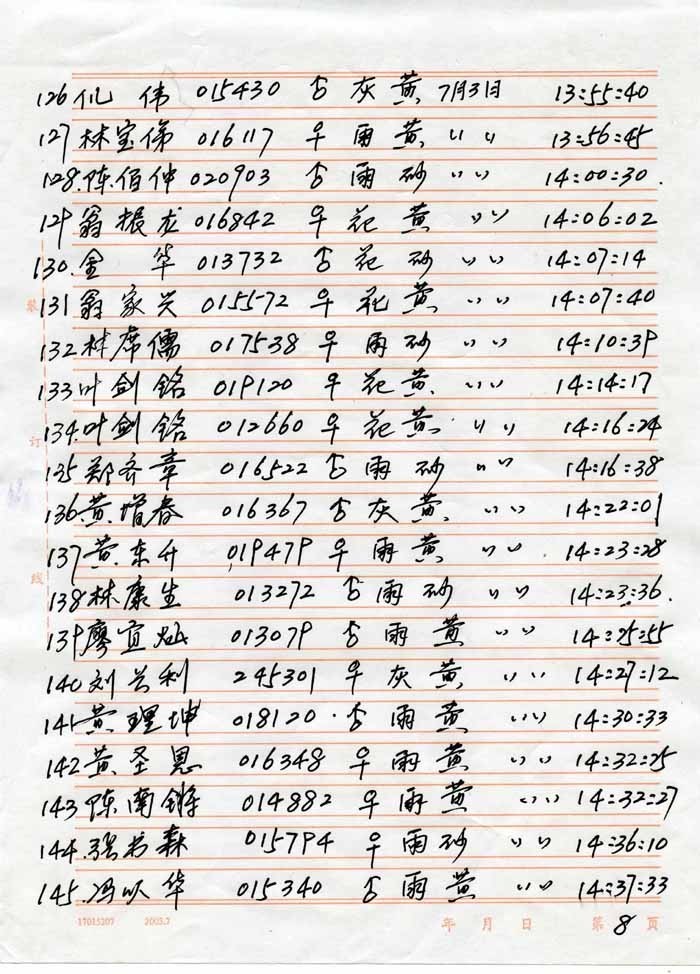 126 仉 伟 015430 ♂ 灰 黄 7月3日 13:55:40
127 林宝俤 016117 ♀ 雨 黄 〃 〃 13:56:45
128.陈佰仲 020903 ♂ 雨 砂 〃 〃 14:00:30.
129 翁振龙 016842 ♀ 花 黄 〃 〃 14:06:02
130.金 华 013732 ♂ 花 砂 〃 〃 14:07:14
装
131 翁家兴 015572 ♀ 花 黄 〃 〃 14:07:40
132 林席儒 017538 ♀ 雨 砂 〃 〃 14:10:39
133 叶剑铭 019120 ♀ 花 黄 〃 〃 14:14:17
134.叶剑铭 012660 ♀ 花 黄 〃 〃 14:16:24
订
135 郑齐章 016522 ♂ 雨 砂 〃 〃 14:16:38
136.黄增春 016367 ♂ 灰 黄 〃 〃 14:22:01
137 黄东升 019479 ♀ 雨 黄 〃 〃 14:23:28
线
138 林康生 013272 ♂ 雨 砂 〃 〃 14:23:36.
139 廖宜灿 013079 ♂ 雨 黄 〃 〃 14:25:55
140 刘兴利 245301 ♀ 灰 黄 〃 〃 14:27:12
141 黄理坤 018120 ♂ 雨 黄 〃 〃 14:30:33
142 黄圣恩 016348 ♀ 雨 黄 〃 〃 14:32:25
143 陈南锵 014882 ♀ 雨 黄 〃 〃 14:32:27
144.张若森 015794 ♀ 雨 砂 〃 〃 14:36:10
145.冯以华 015340 ♂ 雨 黄 〃 〃 14:37:33
17015207 2003.7 年 月 日 第 8 页